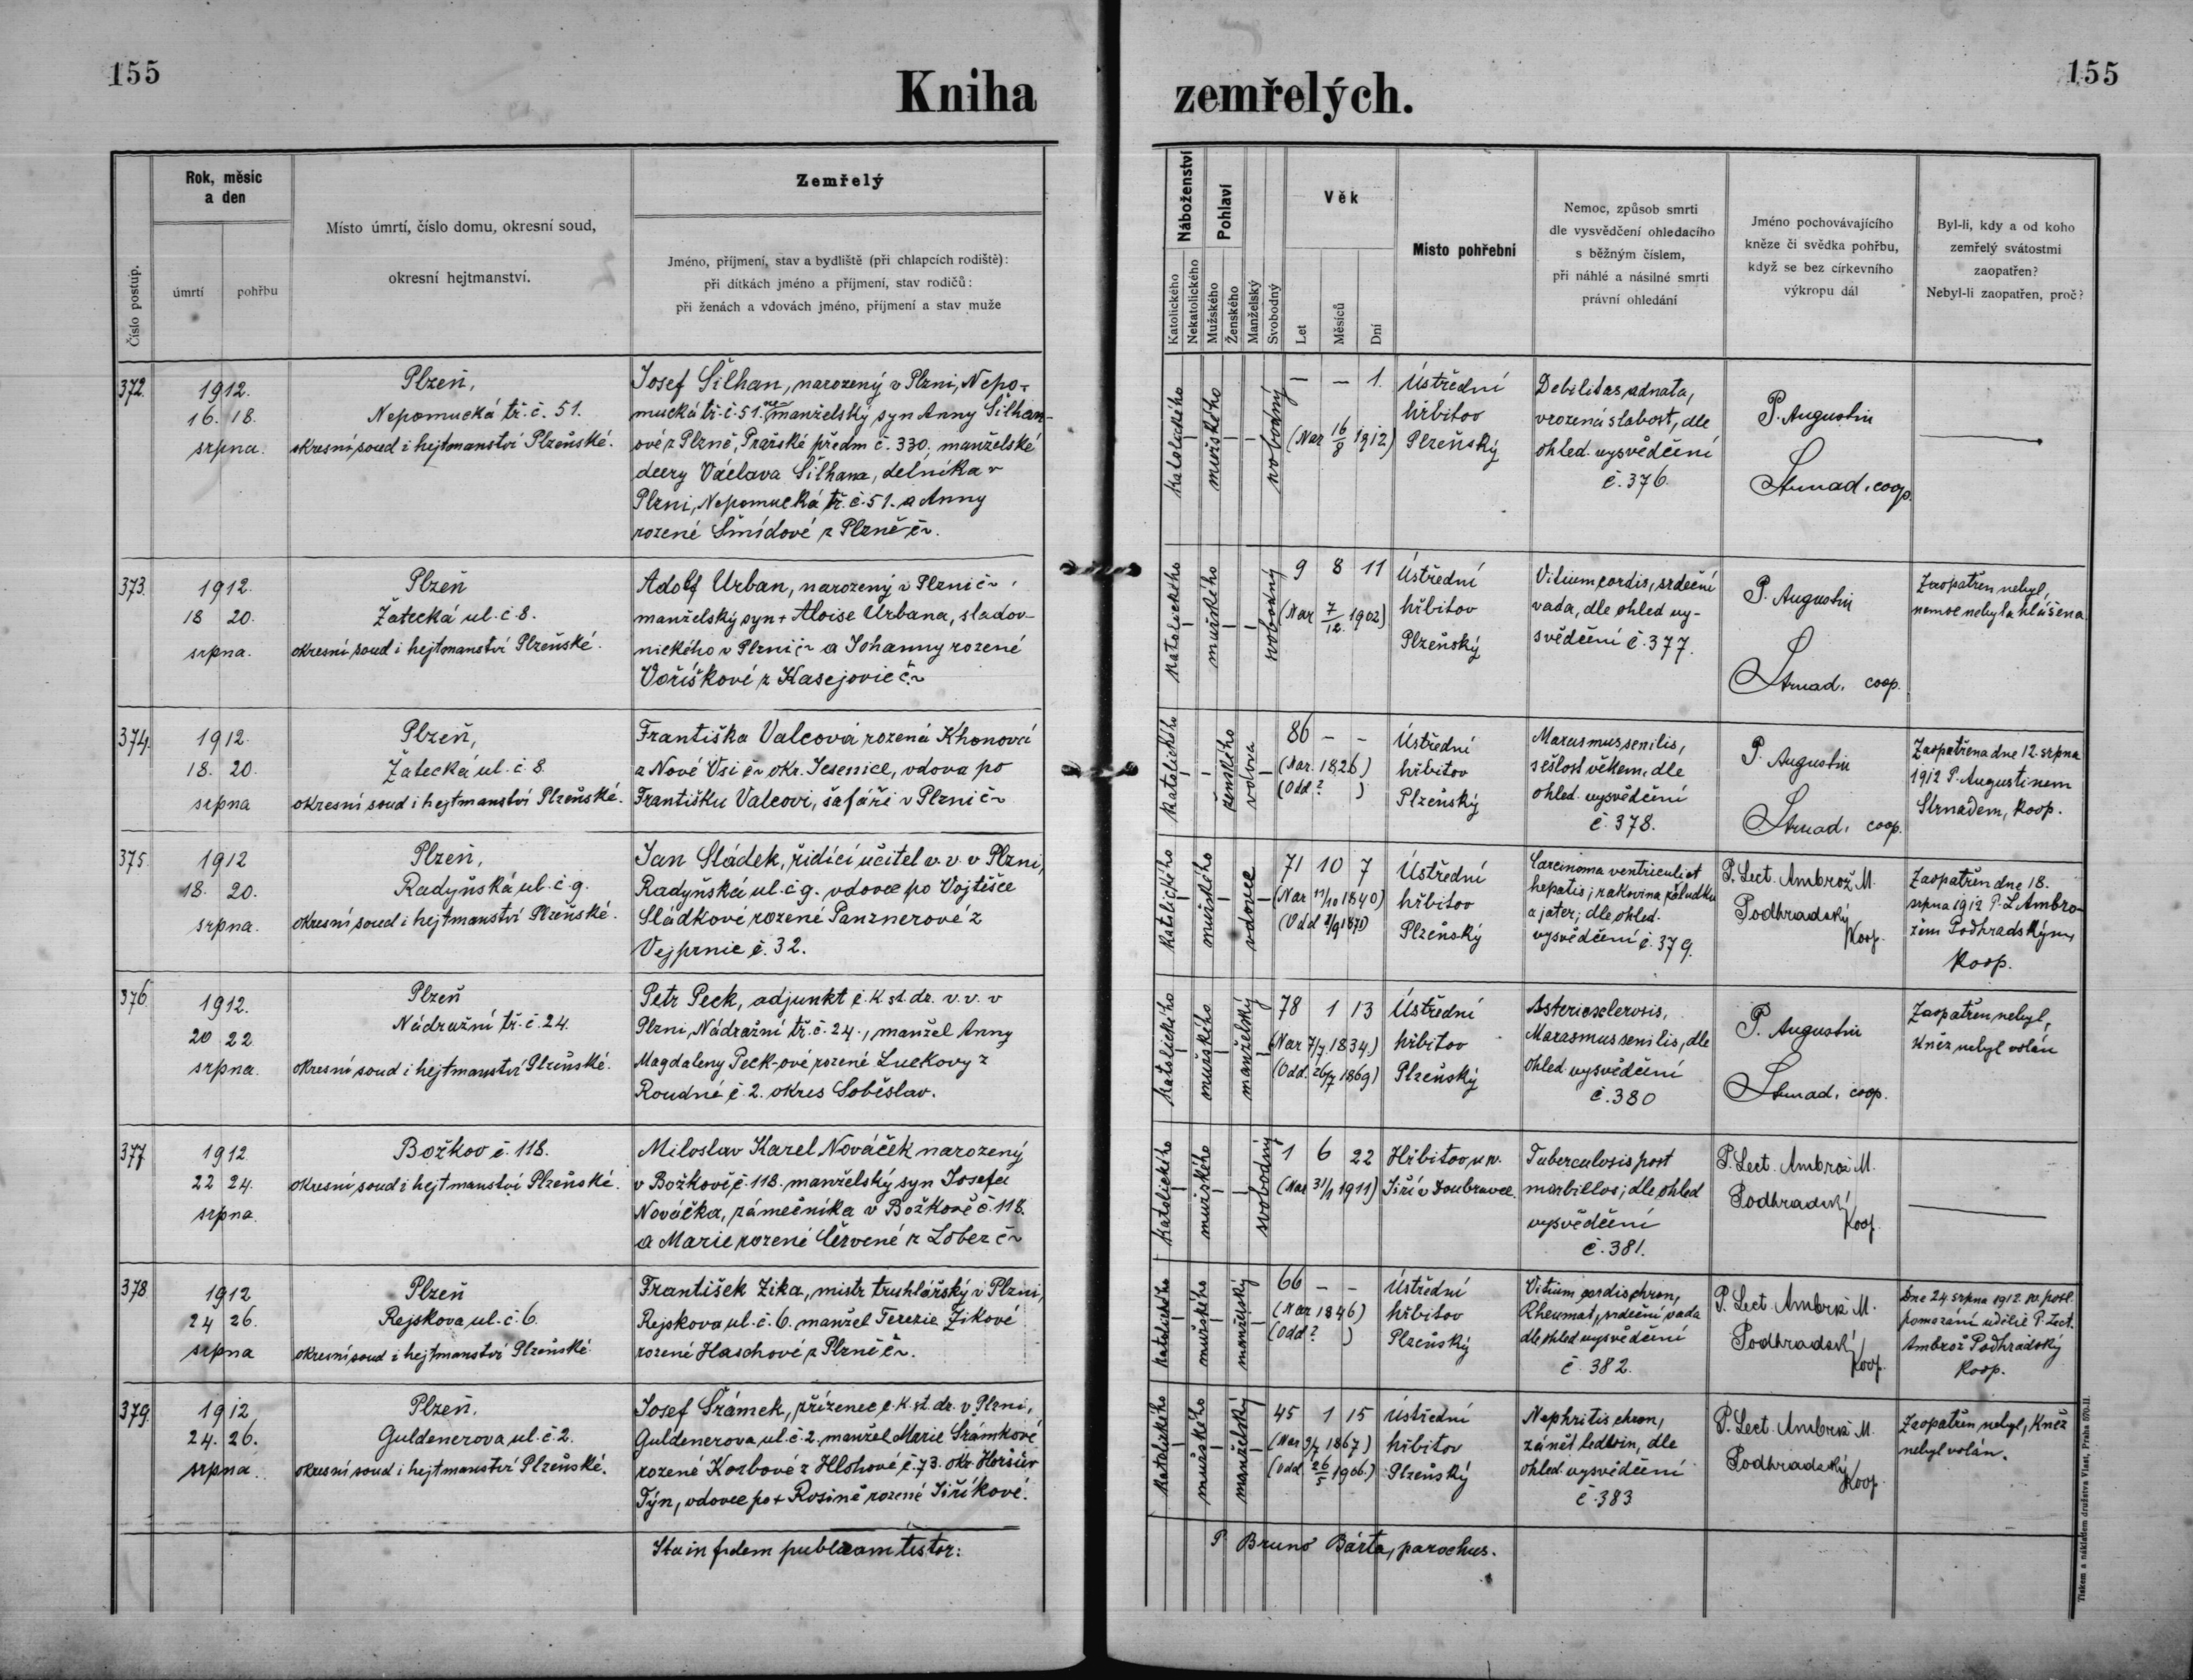 155
Kniha zemřelých.
155
Číslo postup.
Rok, měsíc
a den
úmrtí
pohřbu
Místo úmrtí, číslo domu, okresní soud,
okresní hejtmanství.
Zemřelý
Jméno, příjmení, stav a bydliště (při chlapcích rodiště):
při dítkách jméno a příjmení, stav rodičů:
při ženách a vdovách jméno, příjmení a stav muže
Náboženství
Katolického
Nekatolického
Pohlaví
Mužského
Ženského
Manželský
Svobodný
Věk
Let
Měsíců
Dní
Místo pohřební
Nemoc, způsob smrti
dle vysvědčení ohledacího
s běžným číslem,
při náhlé a násilné smrti
právní ohledání
Jméno pochovávajícího
kněze či svědka pohřbu,
když se bez církevního
výkropu dál
Byl-li, kdy a od koho
zemřelý svátostmi
zaopatřen?
Nebyl-li zaopatřen, proč?
372.
1912.
16. 18.
srpna.
Plzeň,
Nepomucká tř. č. 51.
okresní soud i hejtmanství Plzeňské.
Josef Šilhan, narozený v Plzni, Nepo-
mucká tř. č. 51. nemanželský syn Anny Šilhan-
ové z Plzně, Pražské předm č. 330. manželské
dcery Václava Šilhana, dělníka v
Plzni, Nepomucká tř. č. 51. a Anny
rozené Šmídové z Plzně č~.
katolického
mužského
svobodný
— — 1.
(Nar 16/8 1912)
Ústřední
hřbitov
Plzeňský
Debilitas adnata,
vrozená slabost, dle
ohled. vysvědčení
č. 376.
P. Augustin
Strnad, coop.
373.
1912.
18 20.
srpna.
Plzeň
Žatecká ul. č. 8.
okresní soud i hejtmanství Plzeňské.
Adolf Urban, narozený v Plzni č~,
manželský syn + Aloise Urbana, sladov-
nického v Plzni č~ a Johanny rozené
Voříškové z Kasejovic č.~
katolického
mužského
svobodný
9 8 11
(Nar 7/12. 1902)
Ústřední
hřbitov
Plzeňský
Vitium cordis, srdeční
vada, dle ohled vy-
svědčení č. 377.
P. Augustin
Strnad, coop.
Zaopatřen nebyl,
nemoc nebyla hlášena.
374.
1912.
18. 20.
srpna
Plzeň,
Žatecká ul. č. 8
okresní soud i hejtmanství Plzeňské.
Františka Valcová rozená Khonová
z Nové Vsi č~ okr. Jesenice, vdova po
Františku Valcovi, šafáři v Plzni č~
katolického
ženského
vdova
86 — —
(Nar. 1826)
(Odd ? )
Ústřední
hřbitov
Plzeňský
Marasmus senilis,
sešlost věkem, dle
ohled. vysvědčení
č. 378.
P. Augustin
Strnad, coop.
Zaopatřena dne 12. srpna
1912 P. Augustinem
Strnadem, koop.
375.
1912
18. 20.
srpna.
Plzeň,
Radyňská ul. č. 9.
okresní soud i hejtmanství Plzeňské.
Jan Sládek, řidící učitel v. v. v Plzni,
Radyňská ul. č 9. vdovec po Vojtěšce
Sládkové rozené Panznerové z
Vejprnic č. 32.
katolického
mužského
vdovec
71 10 7
(Nar 11/10 1840)
Ústřední
hřbitov
Plzeňský
Carcinoma ventriculi et
hepatis; rakovina žaludku
a jater; dle ohled.
vysvědčení č. 379.
P. Lect. Ambrož M.
Podhradský
koop.
Zaopatřen dne 18.
srpna 1912 P. L. Ambro-
žem Podhradským
koop.
376
1912.
20 22
srpna.
Plzeň
Nádražní tř. č. 24.
okresní soud i hejtmanství Plzeňské.
Petr Peck, adjunkt c. k. st. dr. v. v. v
Plzni, Nádražní tř. č. 24., manžel Anny
Magdaleny Peck-ové rozené Luckovy z
Roudné č. 2. okres Soběslav.
katolického
mužského
manželský
78 1 13
(Nar 7/7. 1834)
(Odd. 26/7 1869)
Ústřední
hřbitov
Plzeňský
Asteriosclerosis,
Marasmus senilis, dle
ohled. vysvědčení
č. 380
P. Augustin
Strnad, coop.
Zaopatřen nebyl,
kněz nebyl volán
377
1912
22 24.
srpna.
Božkov č. 118.
okresní soud i hejtmanství Plzeňské.
Miloslav Karel Nováček narozený
v Božkově č. 118. manželský syn Josefa
Nováčka, zámečníka v Božkově č. 118.
a Marie rozené Červené z Lobez č~
katolického
mužského
svobodný
1 6 22
(Nar 31/1 1911)
Hřbitov u sv.
Jiří v Doubravce.
Tuberculosis post
morbillos; dle ohled
vysvědčení
č. 381.
P. Lect. Ambrož M.
Podhradský
koop.
378
1912
24 26.
srpna
Plzeň
Rejskova ul. č. 6.
okresní soud i hejtmanství Plzeňské
František Zika, mistr truhlářský v Plzni,
Rejskova ul. č. 6. manžel Terezie Zikové
rozené Haschové z Plzně č~.
katolického
mužského
manželský
66 — —
(Nar 1846)
(Odd ? )
Ústřední
hřbitov
Plzeňský
Vitium cordis chron,
Rheumat, srdeční vada
dle ohled vysvědčení
č. 382.
P. Lect Ambrož M.
Podhradský
koop.
Dne 24 srpna 1912. sv. posl.
pomazání udělil P. Lect.
Ambrož Podhradský
koop.
379.
1912
24. 26.
srpna.
Plzeň.
Guldenerova ul. č. 2.
okresní soud i hejtmanství Plzeňské.
Josef Šrámek, přízenec c. k. st. dr. v Plzni,
Guldenerova ul. č. 2. manžel Marie Šrámkové
rozené Korbové z Hlohové č. 73. okr. Horšův
Týn, vdovec po + Rosině rozené Jiříkové.
katolického
mužského
manželský
45 1 15
(Nar 9/7 1867)
(Odd. 26/5 1906.)
Ústřední
hřbitov
Plzeňský
Nephritis chron,
zánět ledvin, dle
ohled. vysvědčení
č. 383
P. Lect. Ambrož M.
Podhradský
koop
Zaopatřen nebyl, kněz
nebyl volán.
Ita in fidem publicam testor:
P Bruno Bárta, parochus.
Tiskem a nákladem družstva Vlast, Praha 570-II.